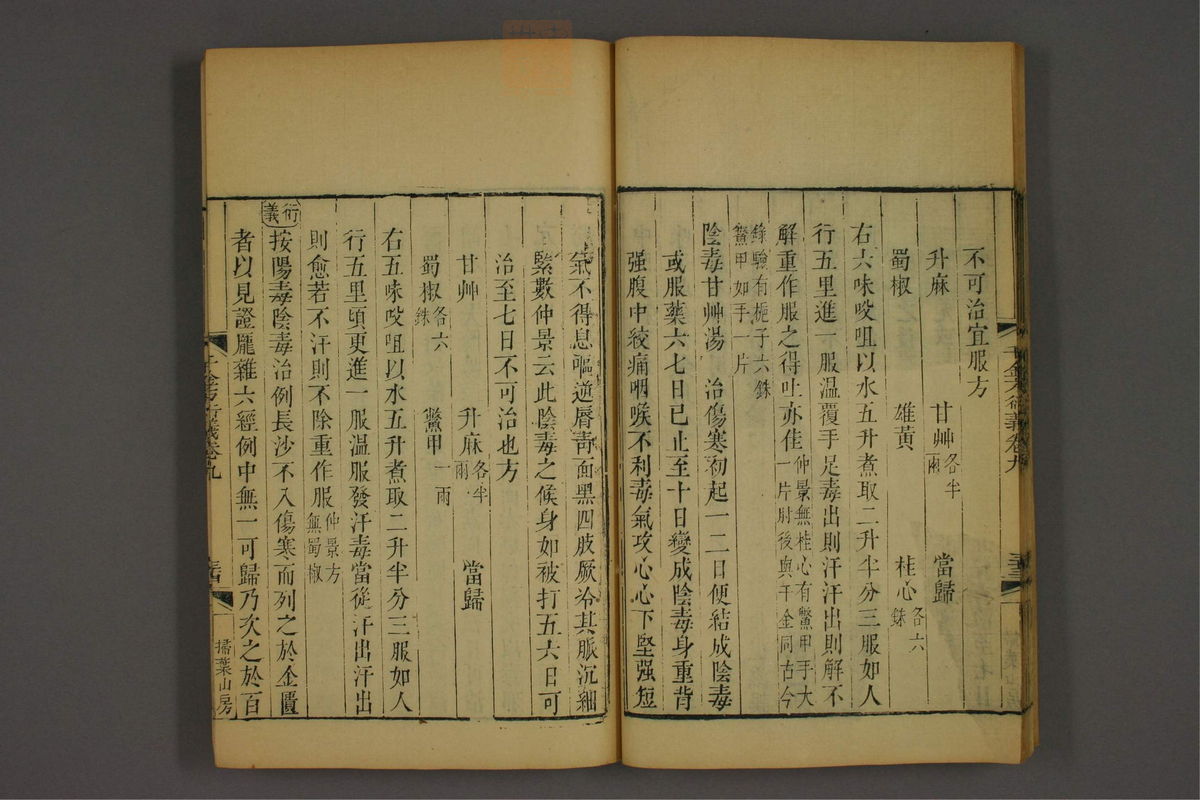 不可治宜服方
升麻 甘艸各半兩 當歸
蜀椒 雄黃 桂心各六銖
右六味㕮咀以水五升煮取二升半分三服如人
行五里進一服温覆手足毒出則汗汗出則解不
解重作服之得吐亦佳仲景無桂心有鱉甲手大一片肘後與千金同古今
錄驗有梔子六銖鱉甲如手一片
陰毒甘艸湯 治傷寒初起一二日便結成陰毒
或服藥六七日已止至十日變成陰毒身重背
强腹中絞痛咽喉不利毒氣攻心心下堅强短
千金方衍義卷九
三十三
氣不得息嘔逆脣靑面黑四肢厥冷其脈沉細
緊數仲景云此陰毒之候身如被打五六日可
治至七日不可治也方
甘艸 升麻各半兩 當歸
蜀椒各六銖 鱉甲一兩
右五味㕮咀以水五升煮取二升半分三服如人
行五里頃更進一服温服發汗毒當從汗出汗出
則愈若不汗則不除重作服仲景方無蜀椒
衍義
按陽毒陰毒治例長沙不入傷寒而列之於金匱
者以見證龐雜六經例中無一可歸乃次之於百
千金方衍義卷九
三十四
掃葉山房